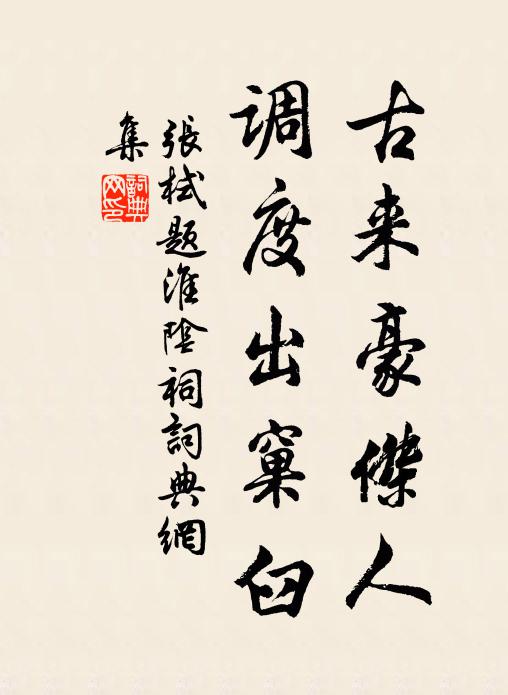 古来豪傑人
调度出窠臼
張栻題淮陰祠詞典網
集
詞典網印